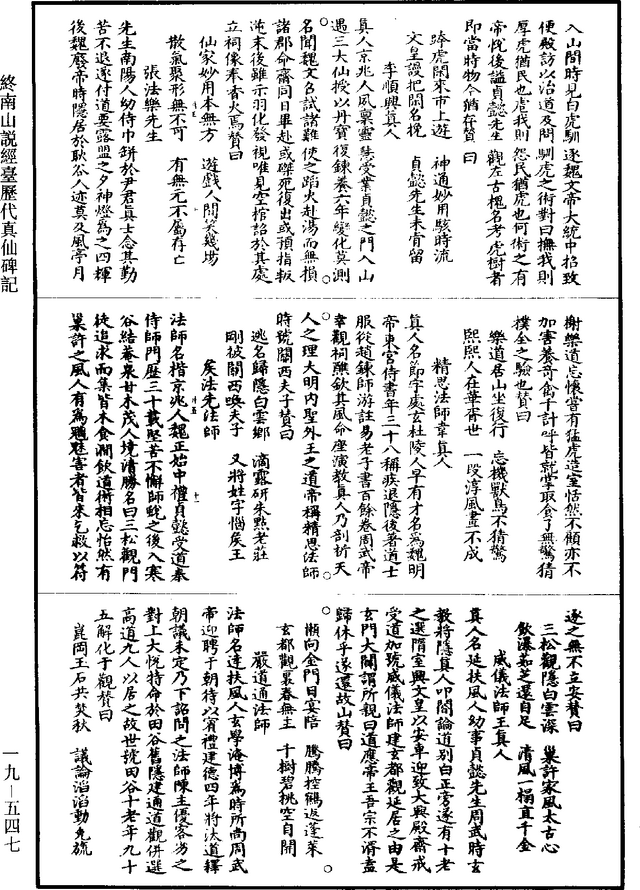 入山間時見白虎馴逐魏文帝大統中招致
便殿訪以治道及問馴虎之術對曰撫我則
厚虎猶民也虐我則怨民猶虎也何術之有
帝悅後謚貞懿先生觀左古槐名考虎樹者
即當時物今猶存贊曰
跨虎閑來市上遊　神通妙用駭時流
文皇謾把閑名挽　貞懿先生未肯留
李順興真人
真人京兆人風稟靈慧受業貞懿之門入山
遇三大仙授以丹寶復鍊養六年變化莫測
名聞魏文召試諸難使之蹈火赴湯而無損
諸郡命齋同日畢赴或磔死復出或預指叛
逆末後雖示羽化發視唯見空棺詔於其處
立祠像奉香火焉贊曰
仙家妙用本無方　遊戲人間笑幾場
散氣聚形無不可　有無元不屬存亡
張法樂先生
先生南陽人幼侍巾缾於尹君真士念其勤
苦不退遂付道要露盟之夕神燈為之四輝
後魏廢帝時隱居於耿谷人迹莫及風亭月
榭樂道忘懷嘗有猛虎造室恬然不顧亦不
加害養奇禽千計呼皆就掌取食了無驚猜
樸全之驗也贊曰
樂道居山坐復行　忘機獸鳥不猜驚
熙熙人在華胥世　一段淳風畫不成
精思法師韋真人
真人名節字處玄杜陵人早有才名為魏明
帝東宮侍書年三十八稱疾退隱後著道士
服從趙鍊師游註易老子書百餘卷周武帝
幸觀祠醮欽其風命座演教真人乃剖析天
人之理大明內聖外王之道帝稱精思法師
時號關西夫子贊曰
逃名歸隱白雲鄉　滴露研朱點老莊
剛被關西喚夫子　又將姓字惱侯王
侯法先法師
法師名楷京兆人魏正始中禮貞懿受道奉
侍師門歷三十載堅苦不懈師蛻之後入寒
谷結菴泉甘木茂人境清勝名曰三松觀門
徒追求而集皆木食澗飲道術相忘怡然有
巢許之風人有為魑魅害者皆來乞救以符
逐之無不立安贊曰
三松觀隱白雲深　巢許家風太古心
飲瀑茹芝還自足　清風一榻直千金
威儀法師王真人
真人名延扶風人幼事貞懿先生周武時玄
教將隱真人叩閤論道别白正旁遂有十老
之選隋室興文皇以安車迎致大興殿齋戒
受道加號威儀法師建玄都觀延居之由是
玄門大闡謂所親曰道應帝王吾宗不滑盍
歸休乎遂還故山贊曰
懶向金門日宴陪　騰騰控鶴返蓬萊
玄都觀裏春無主　千樹碧桃空自開
嚴道通法師
法師名達扶風人玄學淹博為時所尚周武
帝迎聘于朝待以賓禮建德四年將汰道釋
朝議未定乃下詔問之法師陳主優客劣之
對上大悅特命於田谷舊隱建通道觀併選
高道九人以居之故世號田谷十老年九十
五解化于觀贊曰
崑岡玉石共焚秋　議論滔滔動冕旒
終南山説經臺歷代真仙碑記
一九－五四七